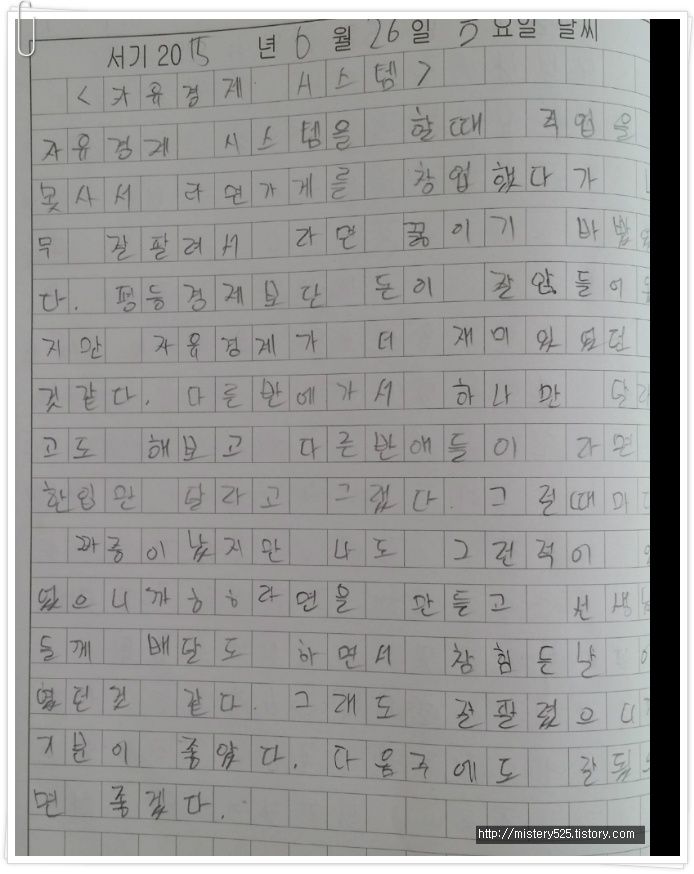 서기 2015 년 6 월 26 일 요일 날씨
<자유경제 시스템>
자유경제 시스템을 할때 직업을
못사서 라면가게를 창업했다가 너
무 잘팔려서 라면 끓이기 바빴
다. 평등경제보단 돈이 잘 않들어
지만 자유경제가 더 재미있었던
것같다. 다른반에가서 하나만 달라
고도 해보고 다른반애들이 라면
한입만 달라고 그랬다. 그럴때마다
짜증이 났지만 나도 그런적이
었으니까ㅎㅎ라면을 만들고 선생님
들께 배달도 하면서 참힘든날이
였던것 같다. 그래도 잘팔렸으니
기분이 좋았다. 다음주에도 잘됬으
면 좋겠다.
http://mistery525.tistory.com